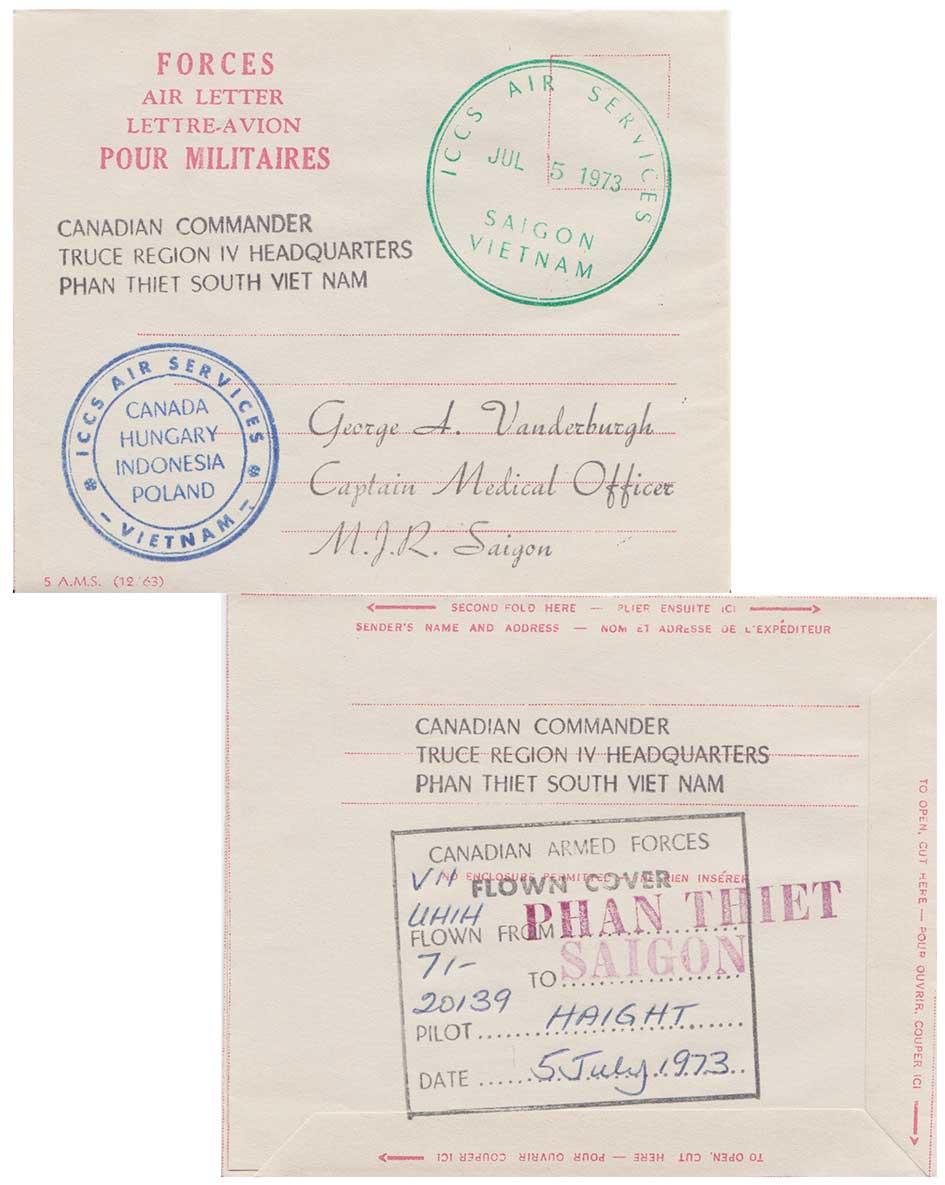 FORCES
AIR LETTER
LETTRE-AVION
POUR MILITAIRES
ICCS AIR SERVICES
JUL 5 1973
SAIGON
VIETNAM
CANADIAN COMMANDER
TRUCE REGION IV HEADQUARTERS
PHAN THIET SOUTH VIET NAM
ICCS AIR SERVICES
CANADA
HUNGARY
INDONESIA
POLAND
- VIETNAM -
George A. Vanderburgh
Captain Medical Officer
M.J.R. Saigon
5 A.M.S. (12/63)
SECOND FOLD HERE — PLIER ENSUITE ICI
SENDER'S NAME AND ADDRESS — NOM ET ADRESSE DE L'EXPÉDITEUR
CANADIAN COMMANDER
TRUCE REGION IV HEADQUARTERS
PHAN THIET SOUTH VIET NAM
CANADIAN ARMED FORCES
NO ENCLOSURE PERMITTED — NE RIEN INSÉRER
VN FLOWN COVER
UH1H
FLOWN FROM PHAN THIET
71-
TO SAIGON
20139
PILOT HAIGHT
DATE 5 July 1973
TO OPEN, CUT HERE — POUR OUVRIR, COUPER ICI
TO OPEN, CUT HERE — POUR OUVRIR COUPER ICI